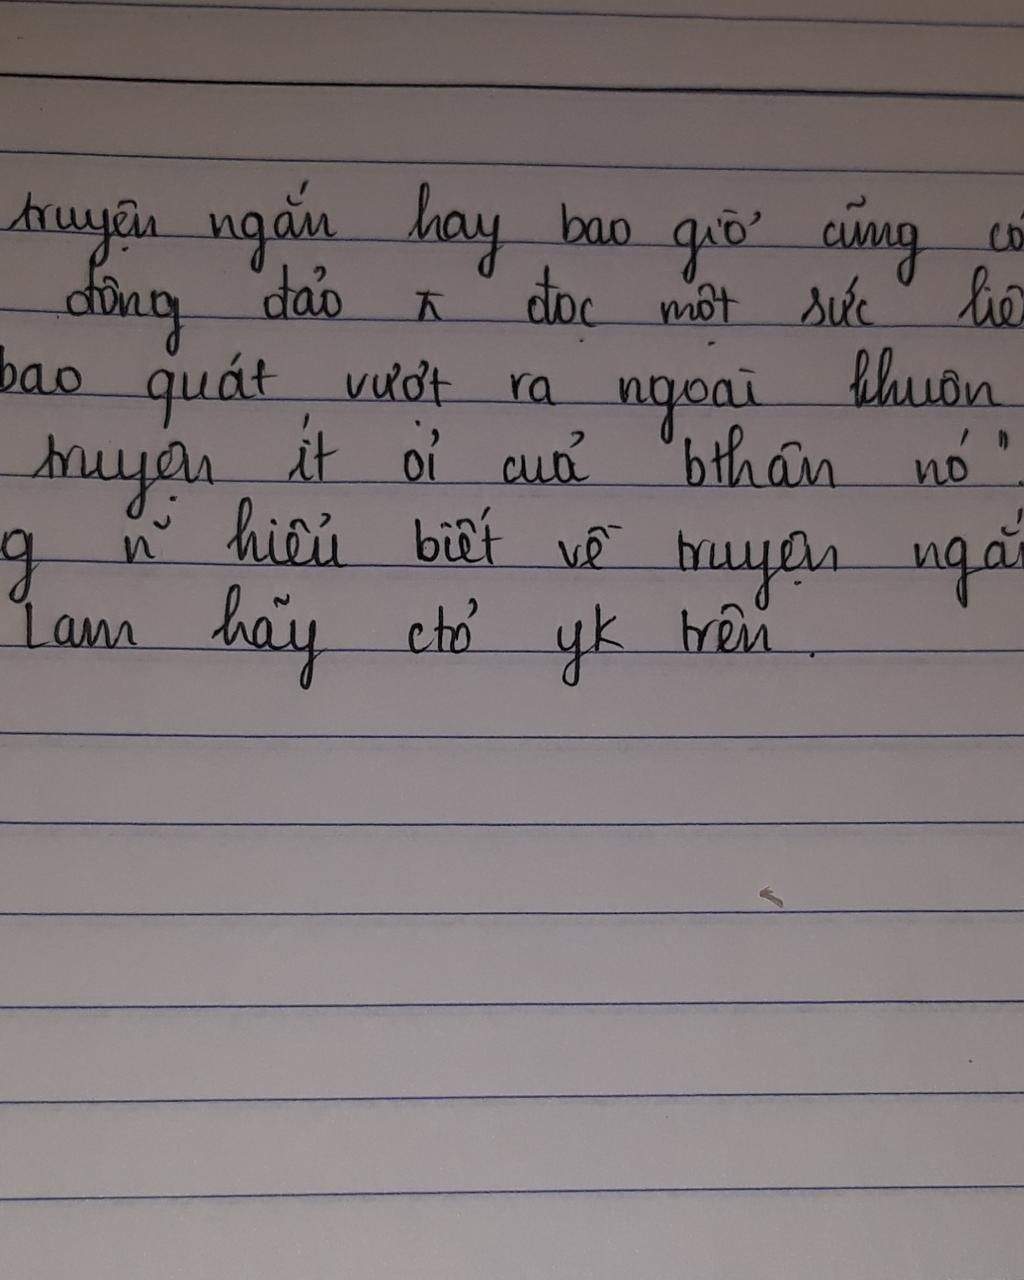 truyện ngắn hay bao giờ cũng có
đông đảo π đọc một sức liê
bao quát vượt ra ngoài khuôn
truyện ít ỏi của bthân nó".
g n~ hiểu biết về truyện ngắ
Lam hãy ctỏ yk trên.